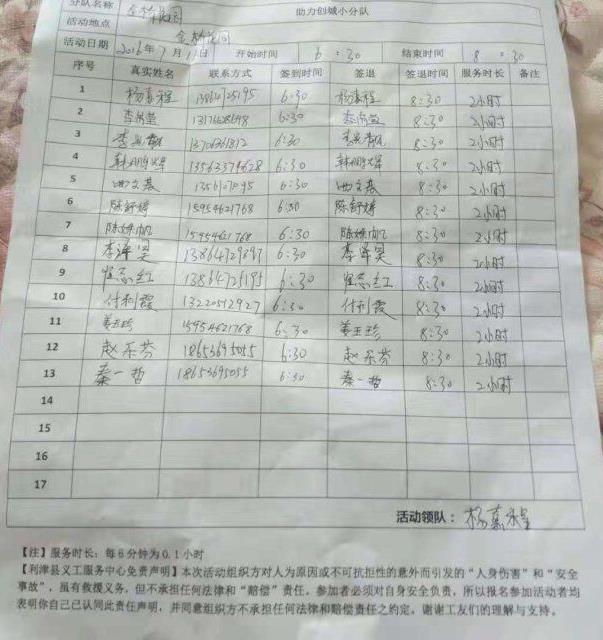 分队名称 助力创城小分队
活动地点
活动日期 2016年7月11日 开始时间 6:30 结束时间 8:30
序号 真实姓名 联系方式 签到时间 签退 签退时间 服务时长 备注
1 杨嘉程 13864725195 6:30 杨嘉程 8:30 2小时
2 6:30 8:30 2小时
3 13706361812 6:30 8:30 2小时
4 13563374628 6:30 8:30 2小时
5 6:30 8:30 2小时
6 陈舒婷 15954621768 6:30 陈舒婷 8:30 2小时
7 15954621768 6:30 8:30 2小时
8 李泽昊 13864729897 6:30 李泽昊 8:30 2小时
9 13864725195 6:30 8:30 2小时
10 付利霞 13220512927 6:30 付利霞 8:30 2小时
11 姜玉珍 15954621768 6:30 姜玉珍 8:30 2小时
12 赵乐芬 18653695055 6:30 赵乐芬 8:30 2小时
13 秦一哲 18653695055 6:30 秦一哲 8:30 2小时
14
15
16
17
活动领队：杨嘉程
【注】服务时长：每6分钟为0.1小时
【利津县义工服务中心免责声明】本次活动组织方对人为原因或不可抗拒性的意外而引发的“人身伤害”和“安全
事故”，虽有救援义务，但不承担任何法律和“赔偿”责任。参加者必须对自身安全负责，所以报名参加活动者均
表明你自己已认同此责任声明，并同意组织方不承担任何法律和赔偿责任之约定，谢谢工友们的理解与支持。